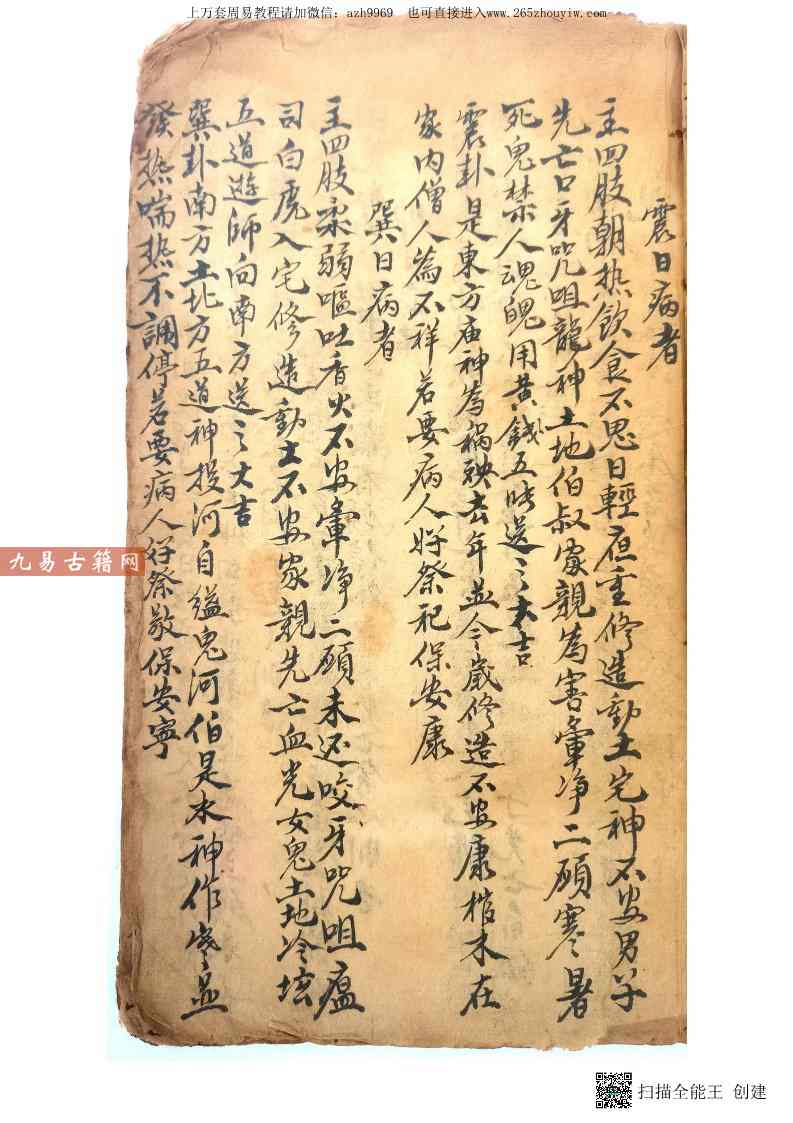 上万套周易教程请加微信：azh9969　也可直接进入www.265zhouyiw.com
震日病者
主四肢朝热飲食不思日輕夜重修造動土宅神不安男子
先亡口牙咒咀龍神土地伯叔家親為害葷净二願寒暑
死鬼禁人魂魄用黄錢五時送之大吉
震卦是東方庙神為禍殃去年並今歲修造不安康棺木在
家内僧人為不祥若要病人好祭祀保安康
巽日病者
主四肢柔弱嘔吐香火不安葷净二願未还咬牙咒咀瘟
司白虎入宅修造動土不安家親先亡血光女鬼土地冷壇
五道遊師向南方送之大吉
巽卦南方土北方五道神投河自縊鬼河伯是水神作寒並
發热喘热不調停若要病人好祭敬保安寧
九易古籍网
扫描全能王 创建